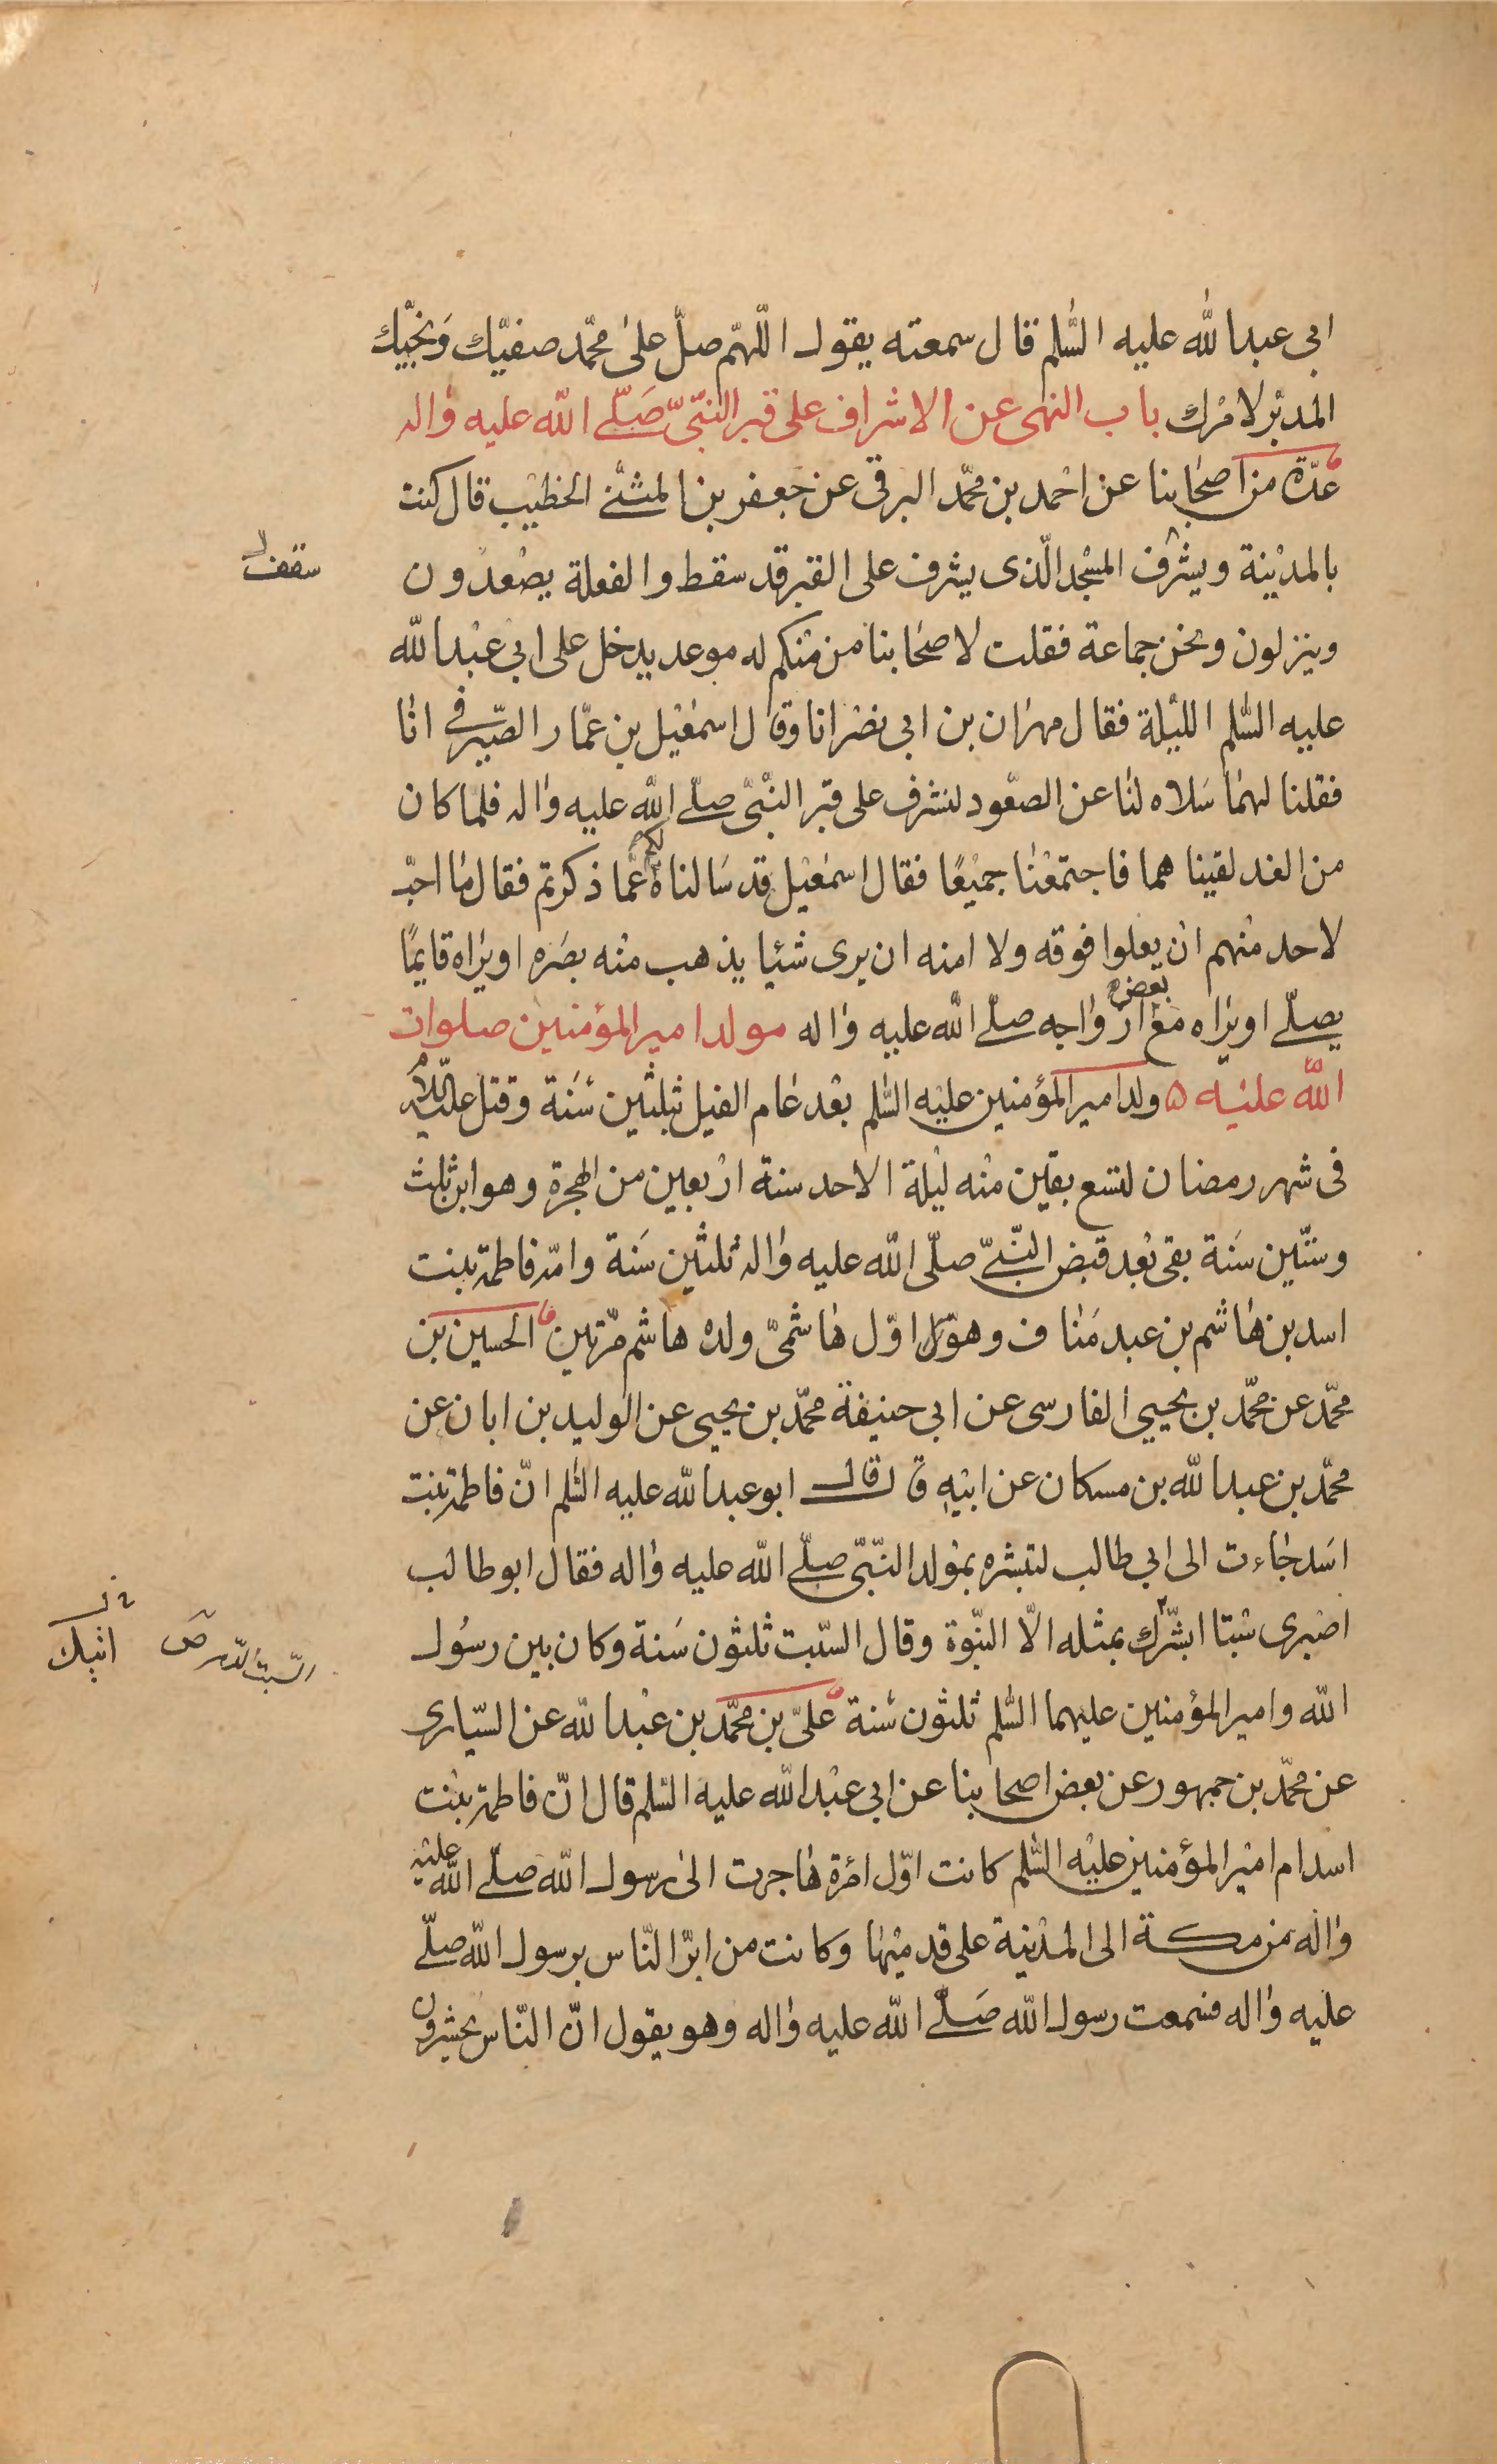 ابى عبدالله عليه السّلم قال سمعته يقول اللّهمّ صلّ على محمّد صفيّك ونجيّك
المدبّر لامرك باب النهى عن الاشراف على قبر النّبىّ صلّى الله عليه واله
عدّة من اصحابنا عن احمد بن محمّد البرقى عن جعفر بن المثنى الخطيب قال كنت
بالمدينة ويشرف المسجد الّذى يشرف على القبر قد سقط والفعلة يصعدون
سقف
وينزلون ونحن جماعة فقلت لاصحابنا من منكم له موعد يدخل على ابى عبدالله
عليه السّلم الليلة فقال مهران بن ابى نصر انا وقال اسمعيل بن عمّار الصّيرفى انا
فقلنا لهما سلاه لنا عن الصعود لنشرف على قبر النّبىّ صلّى الله عليه واله فلما كان
من الغد لقيناهما فاجتمعنا جميعًا فقال اسمعيل قد سالناه لكم عمّا ذكرتم فقال ما احبّ
لاحد منهم ان يعلوا فوقه ولا امنه ان يرى شئيا يذهب منه بصره او يراه قايمًا
يصلّى او يراه مع بعض ازواجه صلّى الله عليه واله مولد امير المؤمنين صلوات
الله عليه ۵ ولد امير المؤمنين عليه السّلم بعد عام الفيل بثلثين سنة وقتل عليه السّلام
فى شهر رمضان لتسع بقين منه ليلة الاحد سنة اربعين من الهجرة وهو ابن ثلث
وستّين سنة بقى بعد قبض النّبىّ صلّى الله عليه واله ثلثين سنة وامّه فاطمة بنت
اسد بن هاشم بن عبد مناف وهو اوّل هاشمىّ ولده هاشم مرّتين الحسين بن
محمّد عن محمّد بن يحيى الفارسى عن ابى حنيفة محمّد بن يحيى عن الوليد بن ابان عن
محمّد بن عبدالله بن مسكان عن ابيه قال قال ابو عبدالله عليه السّلم انّ فاطمة بنت
اسد جاءت الى ابى طالب لتبشره بمولد النّبىّ صلّى الله عليه واله فقال ابو طالب
اصبرى سبتا ابشّرك بمثله الّا النّبوة وقال السّبت ثلثون سنة وكان بين رسول
السبت الدهر ص
اتيك
الله وامير المؤمنين عليهما السّلم ثلثون سنة علىّ بن محمّد بن عبدالله عن السّيارى
عن محمّد بن جمهور عن بعض اصحابنا عن ابى عبدالله عليه السّلم قال انّ فاطمة بنت
اسد ام امير المؤمنين عليه السّلم كانت اوّل امرة هاجرت الى رسول الله صلّى الله عليه
واله من مكة الى المدينة على قدميها وكانت من ابرّ النّاس برسول الله صلّى
عليه واله فسمعت رسول الله صلّى الله عليه واله وهو يقول انّ النّاس يحشرون